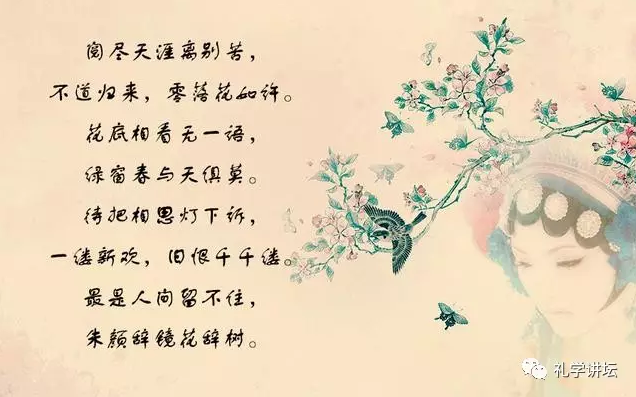 阅尽天涯离别苦，
不道归来，零落花如许。
花底相看无一语，
绿窗春与天俱莫。
待把相思灯下诉，
一缕新欢，旧恨千千缕。
最是人间留不住，
朱颜辞镜花辞树。
礼学讲坛